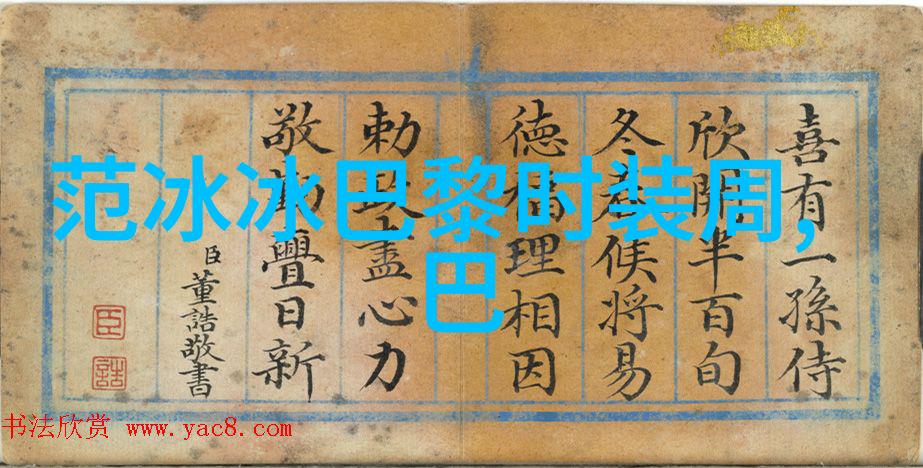 范冰冰巴黎时装周,
巴
喜有一孫侍
欣開半百旬
冬候將易
徳福理相因
勅政盡心力
敬勤日新
臣董誥敬書
臣
誥
书法欣赏 www.yac8.com